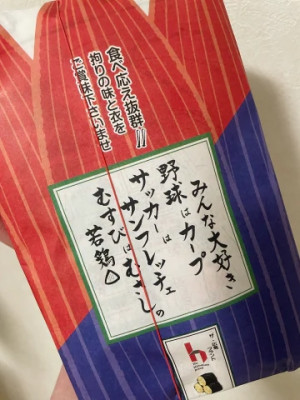 食べ応え抜群!!
拘りの味と衣を
ご賞味下さいませ
みんな大好き
野球はカープ
サッカーは
サンフレッチェ
むすびはむさしの
若鶏
ザ・広島
ブランド